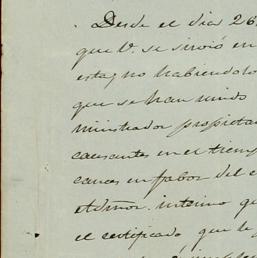 Desde el dia 26
que V. se sirvió en
esta, no habiendolo
que se han unido
ministrador propieta
causantes en el tiemp
cances en fabor del e
Admor. interino qu
el certificado que le